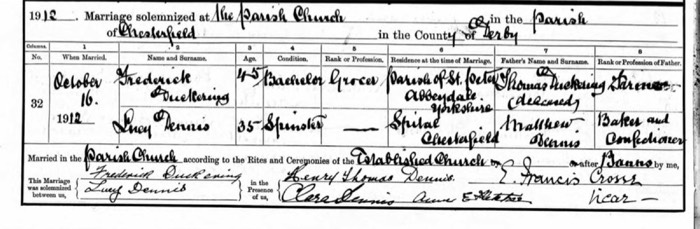 1912. Marriage solemnized at the Parish Church in the Parish
of Chesterfield in the County of Derby
Columns. 1 2 3 4 5 6 7 8
No. When Married. Name and Surname. Age. Condition. Rank or Profession. Residence at the time of Marriage. Father's Name and Surname. Rank or Profession of Father.
32
October 16. 1912
Frederick Duckering 45 Bachelor Grocer Parish of St. Peter Abbeydale Yorkshire Thomas Duckering (deceased) Farmer
Lucy Dennis 35 Spinster — Spital Chesterfield Matthew Dennis Baker and Confectioner
Married in the Parish Church according to the Rites and Ceremonies of the Established Church or after Banns by me,
This Marriage was solemnized between us, Frederick Duckering Lucy Dennis in the Presence of us, Henry Thomas Dennis. Clara Dennis Anne E. Francis Crosse Vicar —